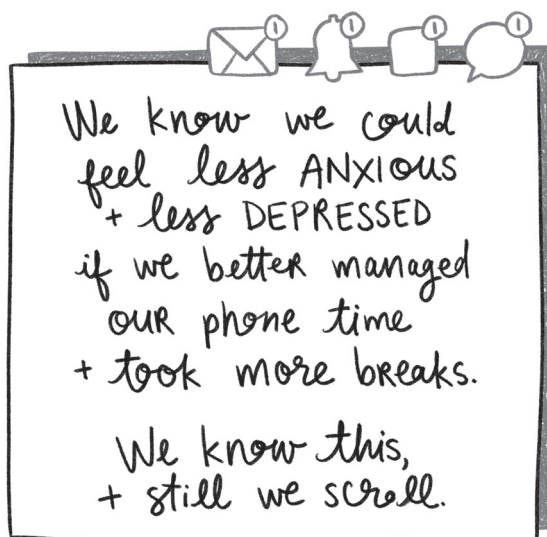 1 1 1 1
We know we could
feel less ANXIOUS
+ less DEPRESSED
if we better managed
our phone time
+ took more breaks.
We know this,
+ still we scroll.